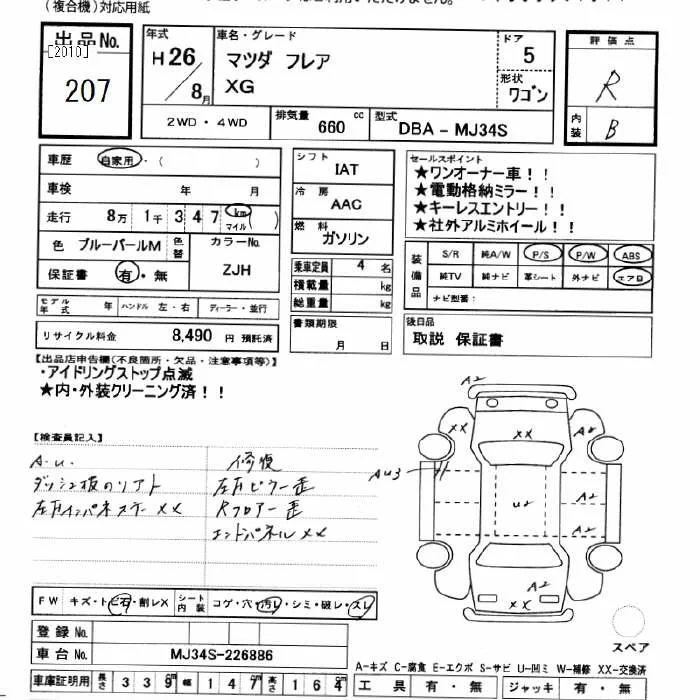 (複合機)対応用紙
出品No.
[2010]
207
年式
H26/8月
車名・グレード
マツダ フレア
XG
ドア
5
形状
ワゴン
評価点
R
内装
B
2WD・4WD
排気量 660 cc
型式 DBA-MJ34S
車歴 自家用・( )
車検 年 月
走行 8万 1千 3 4 7 km マイル ( )
色 ブルーパールM 色替
カラーNo. ZJH
保証書 有・無
シフト IAT
冷房 AAC
燃料 ガソリン
乗車定員 4 名
積載量 kg
総重量 kg
書類期限 月 日
セールスポイント
★ワンオーナー車!!
★電動格納ミラー!!
★キーレスエントリー!!
★社外アルミホイール!!
装備品
S/R 純A/W P/S P/W ABS
純TV 純ナビ 革シート 外ナビ エアロ
ナビ型番:
モデル年式 年 ハンドル 左・右 ディーラー・並行
リサイクル料金 8,490 円 預託済
後日品
取説 保証書
【出品店申告欄(不良箇所・欠品・注意事項等)】
・アイドリングストップ点滅
★内・外装クリーニング済!!
【検査員記入】
A.U.
修復
ダッシュ板のリフト
左右ピラー歪
Rフロアー歪
エンドパネルXX
A2
XX
XX
A2
AU3
U2
A2
A2
A2
XX
スペア
FW キズ・トビ石・割レX シート内装 コゲ・穴・汚レ・シミ・破レ・スレ
登録No.
車台No. MJ34S-226886
A-キズ C-腐食 E-エクボ S-サビ U-凹ミ W-補修 XX-交換済
車庫証明用 長さ 339cm 幅 147cm 高さ 164cm
工具 有・無 ジャッキ 有・無